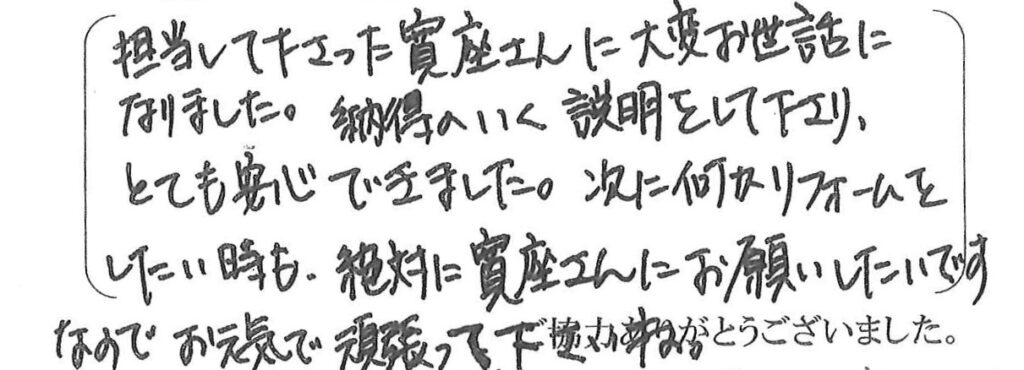 担当して下さった寳座さんに大変お世話に
なりました。納得のいく説明をして下さり、
とても安心できました。次に何かリフォームを
したい時も、絶対に寳座さんにお願いしたいです
なのでお元気で頑張って下さいませ。
ご協力ありがとうございました。